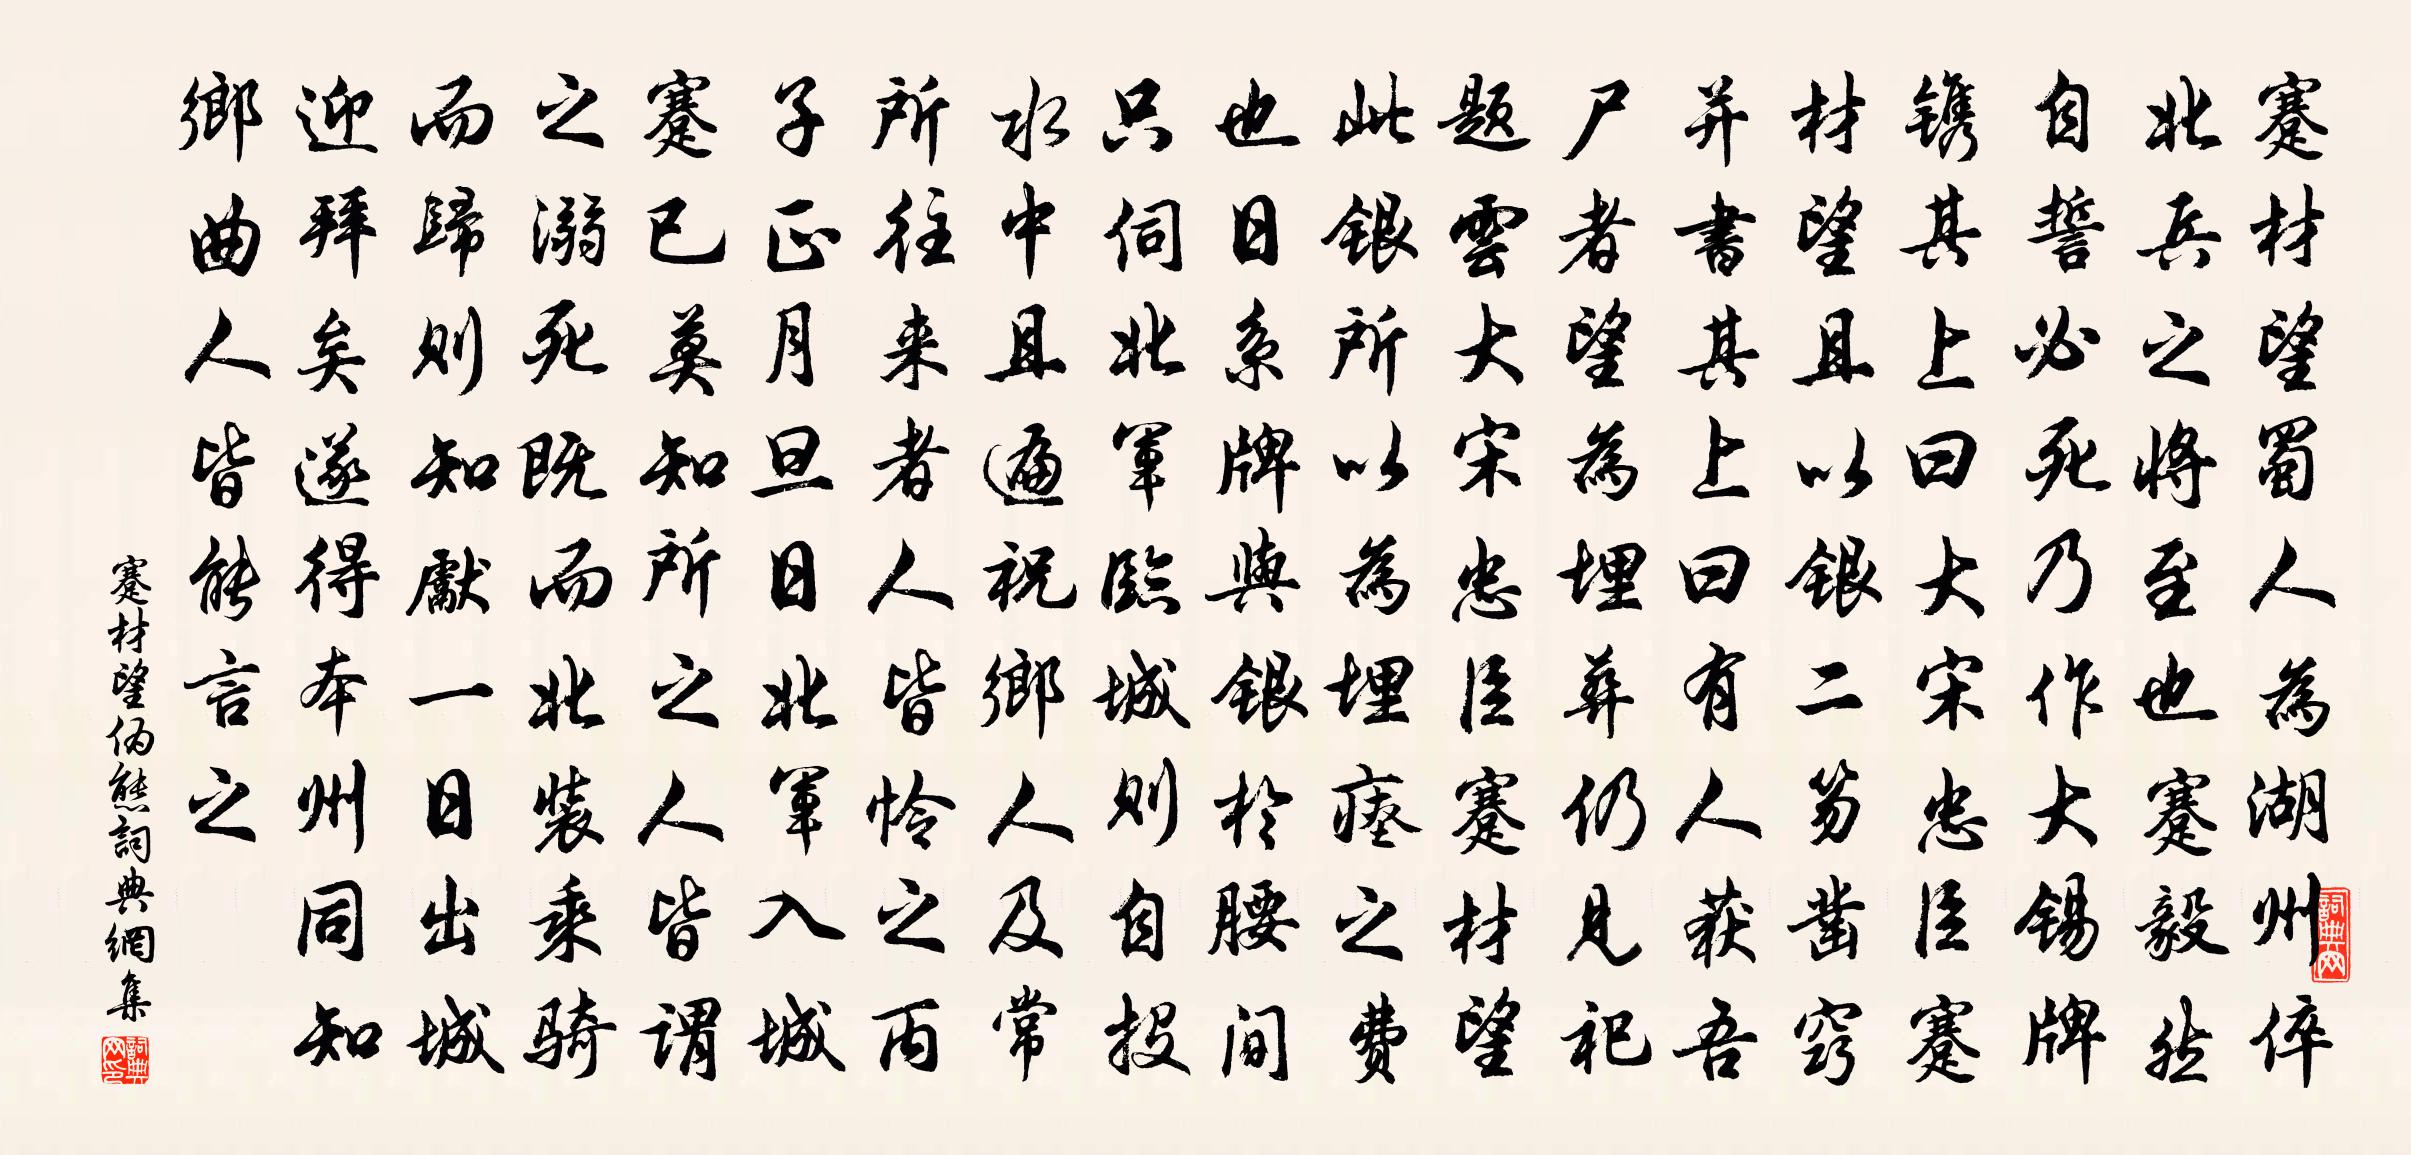 蹇材望蜀人為湖州倅
北兵之將至也蹇毅然
自誓必死乃作大锡牌
镌其上曰大宋忠臣蹇
材望且以银二笏凿窍
并書其上曰有人获吾
尸者望為埋葬仍見祀
题雲大宋忠臣蹇材望
此银所以為埋瘗之费
也日系牌與银於腰间
只伺北軍臨城则自投
水中且遍祝鄉人及常
所往来者人皆怜之丙
子正月旦日北軍入城
蹇已莫知所之人皆谓
之溺死既而北装乘骑
而歸则知獻一日出城
迎拜矣遂得本州同知
鄉曲人皆能言之
蹇材望伪態詞典網集
詞典网
詞典网印